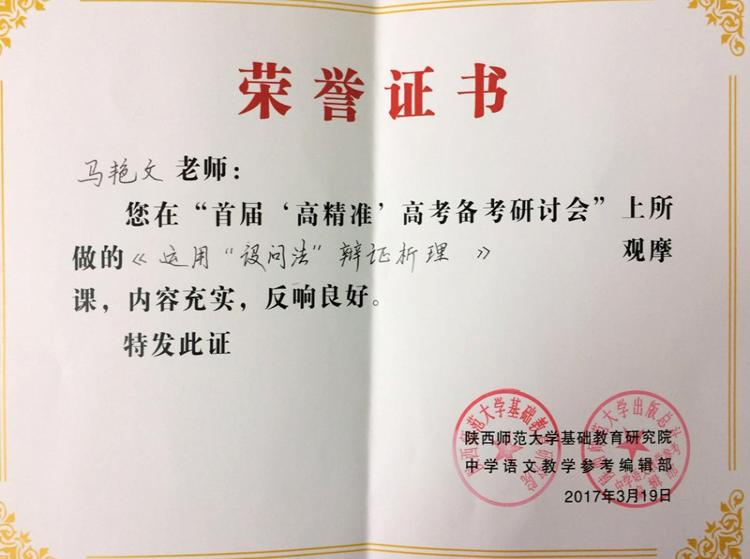 荣誉证书
马艳文 老师：
您在“首届‘高精准’高考备考研讨会”上所
做的《运用“设问法”辩证析理》 观摩
课，内容充实，反响良好。
特发此证
陕西师范大学基础教育研究院
中学语文教学参考编辑部
2017年3月19日
陕西师范大学基础教育研究院